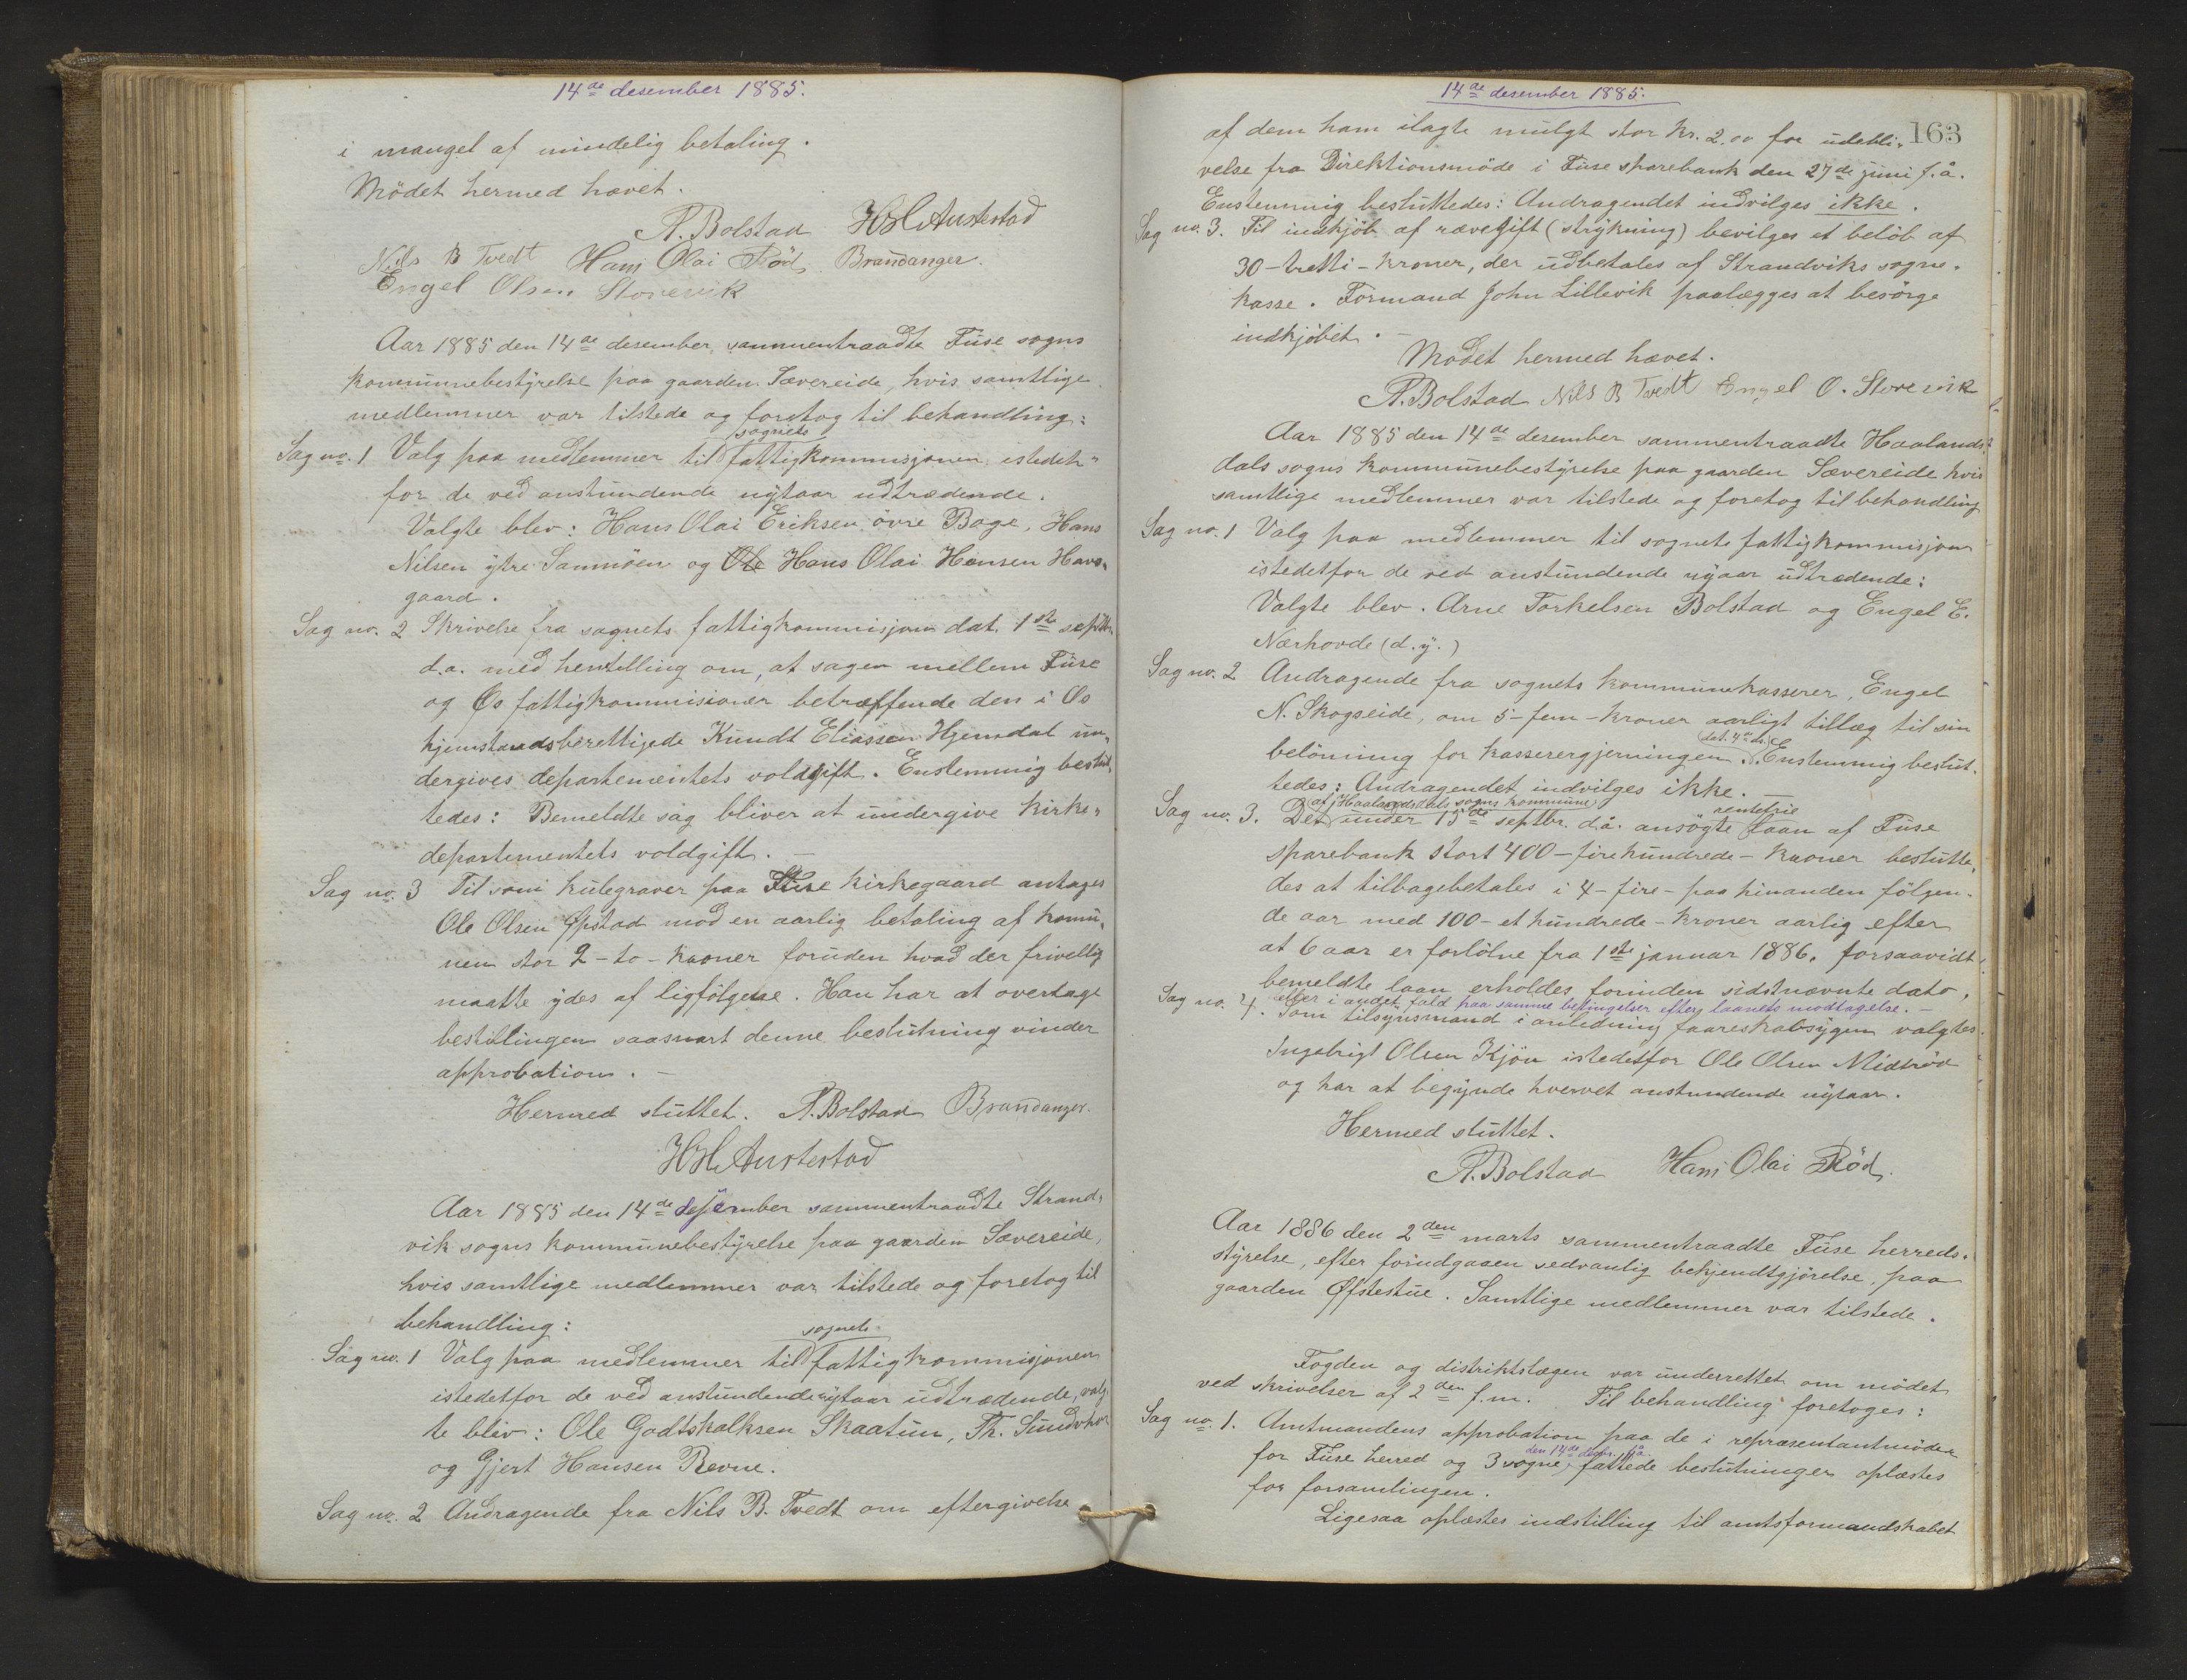 14de desember 1885.
i mangel af mindelig betaling.
Mödet hermed hævet.
A. Bolstad HHAustestad
Nils B Tvedt Hans Olai Röd Brandanger.
Engel Olsen Storevik
Aar 1885 den 14de desember sammentraadte Fuse sogns
kommunebestyrelse paa gaarden Sævereide, hvis samtlige
medlemmer var tilstede og foretog til behandling:
sognets
Sag no. 1 Valg paa medlemmer til fattigkommisjonen istedet-
for de ved anstundende nytaar udtrædende.
Valgte blev: Hans Olai Eriksen övre Bage, Hans
Nilsen ytre Samnöen og Ole Hans Olai Hansen Havs-
gaard.
Sag no. 2 Skrivelse fra sognets fattigkommisjon dat. 1ste septbr.
d.a. med henstilling om, at sagen mellem Fuse
og Os fattigkommisioner betræffende den i Os
hjemstandsberettigede Kundt Eliassen Hjemdal un-
dergives departementets voldgift. Enstemmig beslut-
tedes: Bemeldte sag bliver at undergive kirke-
departementets voldgift. —
Sag no. 3 Til som kulegraver paa Fuse kirkegaard antages
Ole Olsen Øpstad mod en aarlig betaling af komu-
nen stor 2 - to - kroner foruden hvad der frivellig
maatte ydes af ligfölgesse. Han har at overtage
bestillingen saasnart denne beslutning vinder
approbation. —
Hermed sluttet. A. Bolstad Brandanger.
HHAustestad
Aar 1885 den 14de desember sammentraadte Strand-
vik sogns kommunebestyrelse paa gaarden Sævereide,
hvis samtlige medlemmer var tilstede og foretog til
behandling:
sognets
Sag no. 1 Valg paa medlemmer til fattigkommisjonen
istedetfor de ved anstundende nytaar udtrædende, valg-
te blev: Ole Godtskalksen Skaatun, Th. Sundvhor
og Gjert Hansen Revne.
Sag no. 2 Andragende fra Nils B. Tvedt om eftergivelse
14de desember 1885.
163
af dem ham ilagte mulgt stor kr. 2,00 for udebli-
velse fra Direktionsmöde i Fuse sparebank den 27de juni f.å.
Enstemmig besluttedes: Andragendet indvilges ikke.
Sag no. 3. Til indkjöb af rævegift (strykning) bevilges et belöb af
30 - tretti - kroner, der udbetales af Strandviks sogne-
kasse. Formand John Lillevik paalægges at besörge
indkjöbet. —
Mödet hermed hævet.
A. Bolstad Nils B Tvedt Engel O. Storevik
Aar 1885 den 14de desember sammentraadte Haalands-
dals sogns kommunebestyrelse paa gaarden Sævereide hvis
samtlige medlemmer var tilstede og foretog til behandling
Sag no. 1 Valg paa medlemmer til sognets fattigkommisjon
istedetfor de ved anstundende nyaar udtrædende:
Valgte blev. Arne Torkelsen Bolstad og Engel E.
Nærhovde (d.y.)
Sag no. 2 Andragende fra sognets kommunekasserer, Engel
N. Skogseide, om 5 - fem - kroner aarligt tillæg til sin
dat. 4de ds.
belönning for kasserergjerningen. Enstemmig beslut-
tedes: Andragendet indvilges ikke. —
af Haalandsdals sogns kommune rentefrie
Sag no. 3. Det under 15de septbr. d.å. ansögte laan af Fuse
sparebank stort 400 - firehundrede - kroner beslutte-
des at tilbagebetales i 4 - fire - paa hinanden fölgen-
de aar med 100 - et hundrede - kroner aarlig efter
at 6 aar er forlöbne fra 1ste januar 1886, forsaavidt
bemeldte laan erholdes forinden sidstnævnte dato,
eller i andet fald paa samme betingelser efter laanets modtagelse. —
Sag no. 4. Som tilsynsmand i anledning faareskabsygen valgtes
Ingebrigt Olsen Kjön istedetfor Ole Olsen Midtröd
og har at begynde hvervet anstundende nytaar.
Hermed sluttet.
A. Bolstad Hans Olai Röd.
Aar 1886 den 2den marts sammentraadte Fuse herreds-
styrelse, efter forudgaaen sedvanlig bekjendtgjörelse, paa
gaarden Øfstestue. Samtlige medlemmer var tilstede.
Fogden og distriktslægen var underrettet om mödet
ved skrivelser af 2den f.m. Til behandling foretoges:
Sag no. 1. Amtmandens approbation paa de i repræsentantmöder
den 14de desbr. f.å.
for Fuse herred og 3 sogne fattede beslutninger oplæstes
for forsamlingen.
Ligesaa oplæstes indstilling til amtsformandskabet